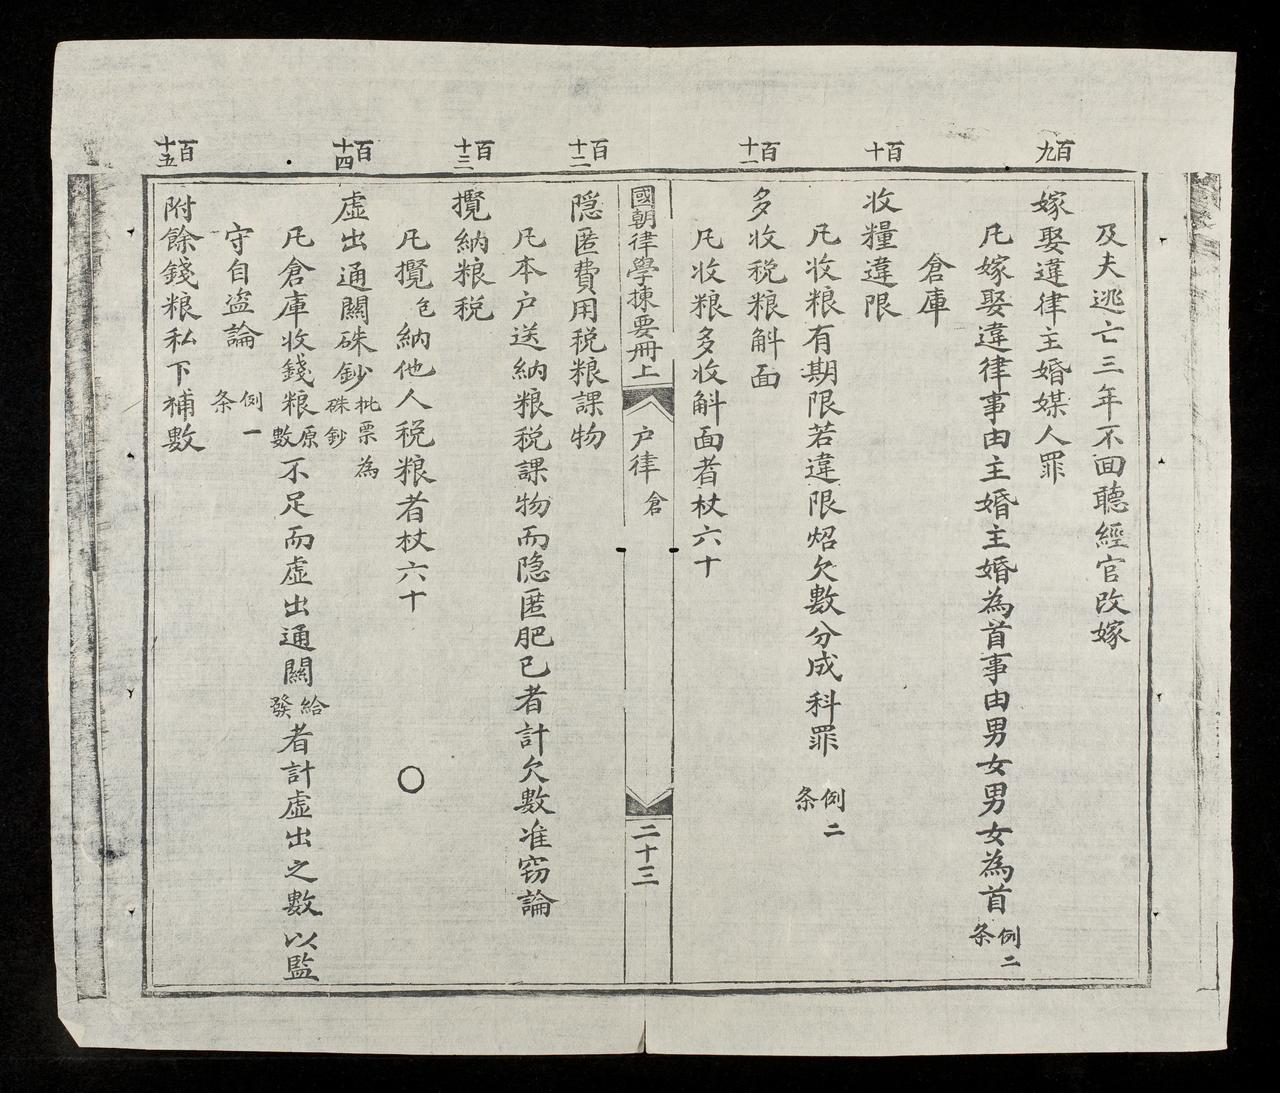 及夫逃亡三年不囬聽經官改嫁
百九
嫁娶違律主婚媒人罪
凢嫁娶違律事由主婚主婚為首事由男女男女為首 例二条
倉庫
百十
收糧違限
凢收粮有期限若違限炤欠數分成科罪 例二条
百十一
多收税粮斛面
凢收粮多收斛面者杖六十
國朝律學揀要冊上 户律 倉 二十三
百十二
隠匿費用税粮課物
凢本户送納粮税課物而隠匿肥已者計欠數准窃論
百十三
攬納粮税
凢攬包納他人税粮者杖六十
百十四
虚出通關硃鈔 批票為硃鈔
凢倉庫收錢粮原數不足而虚出通關給發者計虚出之數以監
守自盗論 例一条
百十五
附餘錢粮私下補數